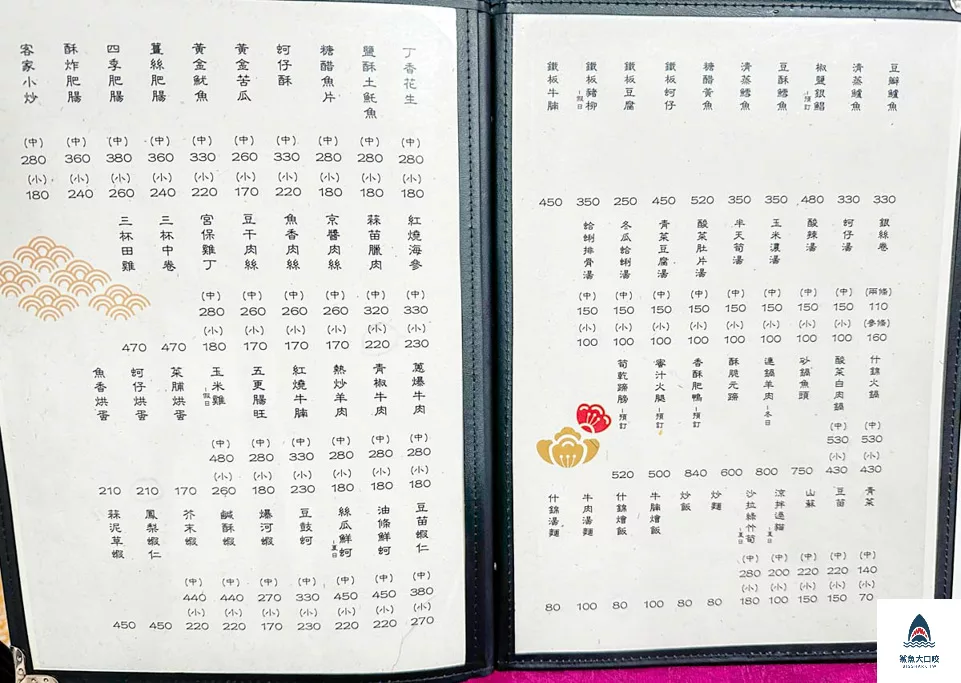 豆瓣鱸魚 330
清蒸鱸魚 330
椒鹽銀鯧-預訂 480
豆酥鱈魚 350
清蒸鱈魚 350
糖醋黃魚 520
鐵板蚵仔 450
鐵板豆腐 250
鐵板豬柳-假日 350
鐵板牛腩 450
銀絲卷 (兩條) 110 (參條) 160
蚵仔湯 (中) 150 (小) 100
酸辣湯 (中) 150 (小) 100
玉米濃湯 (中) 150 (小) 100
半天筍湯 (中) 150 (小) 100
酸菜肚片湯 (中) 150 (小) 100
青菜豆腐湯 (中) 150 (小) 100
冬瓜蛤蜊湯 (中) 150 (小) 100
蛤蜊排骨湯 (中) 150 (小) 100
什錦火鍋 (中) 530 (小) 430
酸菜白肉鍋 (中) 530 (小) 430
砂鍋魚頭 750
連鍋羊肉-冬日 800
酥脆元蹄 600
香酥肥鴨-預訂 840
蜜汁火腿-預訂 500
筍乾蹄膀-預訂 520
青菜 (中) 140 (小) 70
豆苗 (中) 220 (小) 150
山蘇 (中) 220 (小) 150
涼拌過貓-夏日 (中) 200 (小) 100
沙拉綠竹筍-夏日 (中) 280 (小) 180
炒麵 80
炒飯 80
牛腩燴飯 100
什錦燴飯 80
牛肉湯麵 100
什錦湯麵 80
丁香花生 (中) 280 (小) 180
鹽酥土魠魚 (中) 280 (小) 180
糖醋魚片 (中) 280 (小) 180
蚵仔酥 (中) 330 (小) 220
黃金苦瓜 (中) 260 (小) 170
黃金魷魚 (中) 330 (小) 220
薑絲肥腸 (中) 360 (小) 240
四季肥腸 (中) 380 (小) 260
酥炸肥腸 (中) 360 (小) 240
客家小炒 (中) 280 (小) 180
紅燒海參 (中) 330 (小) 230
蒜苗臘肉 (中) 320 (小) 220
京醬肉絲 (中) 260 (小) 170
魚香肉絲 (中) 260 (小) 170
豆干肉絲 (中) 260 (小) 170
宮保雞丁 (中) 280 (小) 180
三杯中卷 470
三杯田雞 470
蔥爆牛肉 (中) 280 (小) 180
青椒牛肉 (中) 280 (小) 180
熱炒羊肉 (中) 280 (小) 180
紅燒牛腩 (中) 330 (小) 230
五更腸旺 (中) 280 (小) 180
玉米雞-假日 (中) 480 (小) 260
菜脯烘蛋 170
蚵仔烘蛋 210
魚香烘蛋 210
豆苗蝦仁 (中) 380 (小) 270
油條鮮蚵 (中) 450 (小) 220
絲瓜鮮蚵-夏日 (中) 450 (小) 220
豆鼓蚵 (中) 330 (小) 230
爆河蝦 (中) 270 (小) 170
鹹酥蝦 (中) 440 (小) 220
芥末蝦 (中) 440 (小) 220
鳳梨蝦仁 450
蒜泥草蝦 450
鯊魚大口咬